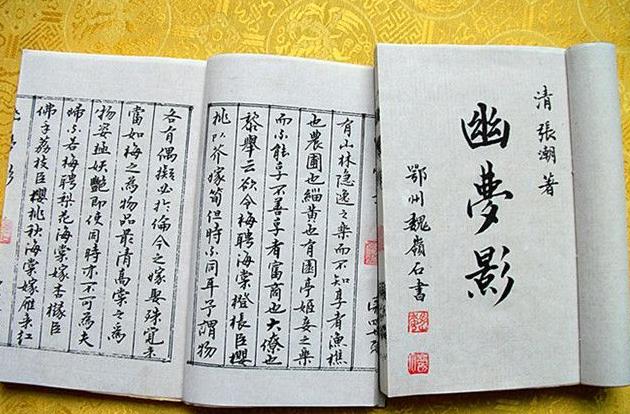 清 張潮 著
幽夢影
鄂州魏嶺石書
有山林隐逸之樂而不知享者漁樵
也農圃也緇黃也有園亭姬妾之樂
而不能享不善享者富商也大僚也
黎舉云欲令梅聘海棠橙棖臣櫻
桃以芥嫁筍但時不同耳予謂物
各有偶擬必於倫今之嫁娶殊覺未
當如梅之為物品最清高棠之為
物姿極妖艷即使同時亦不可為夫
婦不若梅聘梨花海棠嫁杏櫞臣
佛手荔枝臣櫻桃秋海棠嫁雁来红